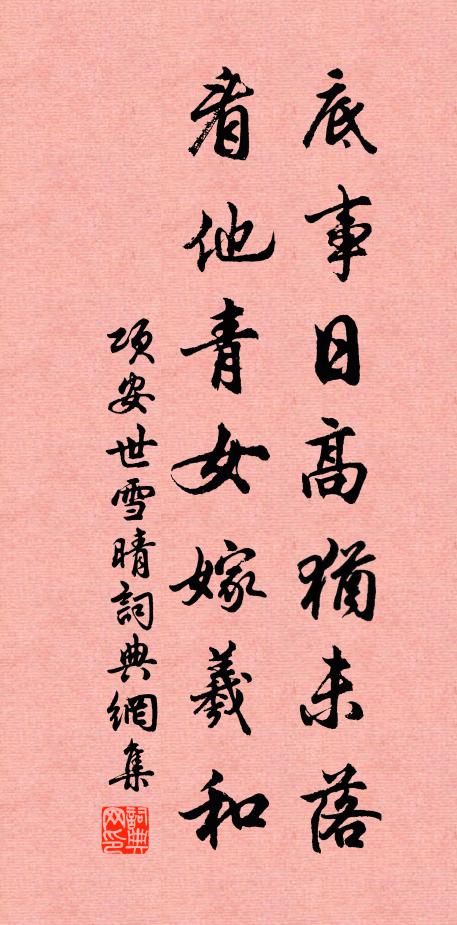 底事日高猶未落
看他青女嫁羲和
項安世雪晴詞典網集
詞典網印